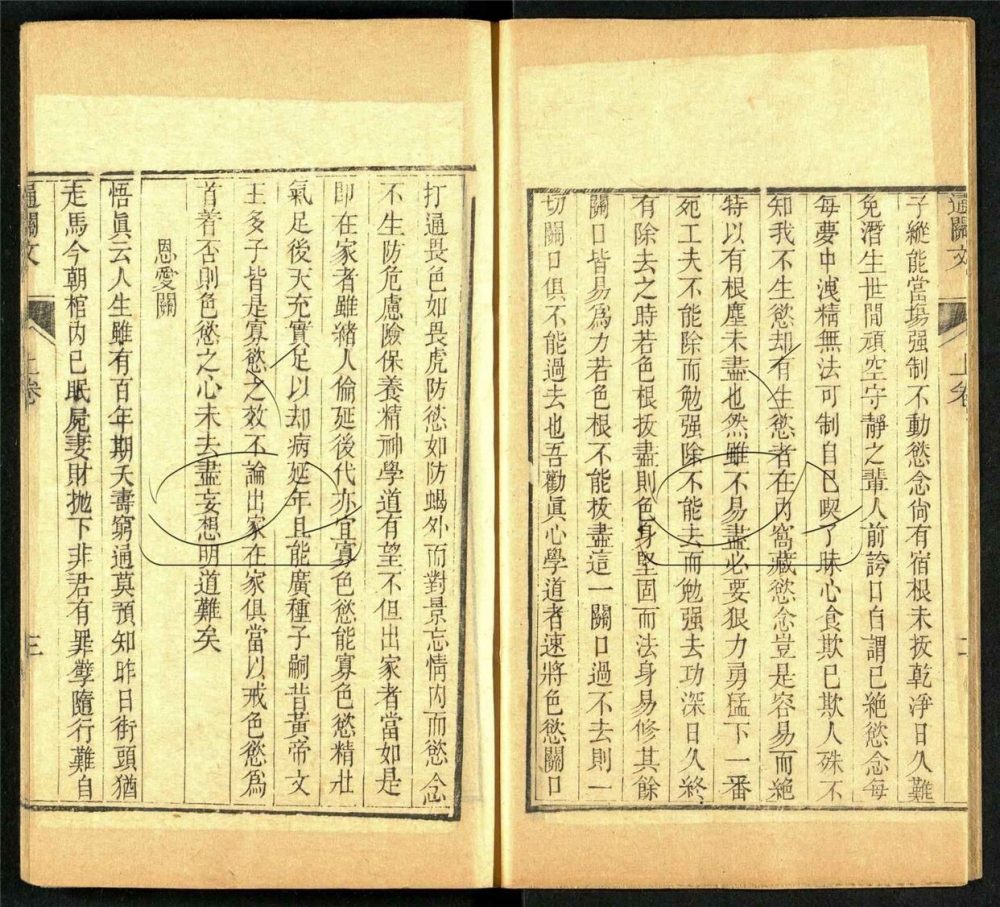 通關文
上卷
二
子縱能當塲强制不動慾念尙有宿根未拔乾淨日久難
免潛生世間頑空守靜之輩人前誇口自謂已絶慾念每
每夢中洩精無法可制自己喫了昧心食欺已欺人殊不
知我不生慾却有生慾者在內窩藏慾念豈是容易而絶
特以有根塵未盡也然雖不易盡必要狠力勇猛下一番
死工夫不能除而勉强除不能去而勉强去功深日久終
有除去之時若色根拔盡則色身堅固而法身易修其餘
關口皆易為力若色根不能拔盡這一關口過不去則一
切關口俱不能過去也吾勸眞心學道者速將色慾關口
打通畏色如畏虎防慾如防蝎外而對景忘情內而慾念
不生防危慮險保養精神學道有望不但出家者當如是
即在家者雖緒人倫延後代亦宜寡色慾能寡色慾精壯
氣足後天充實足以却病延年且能廣種子嗣昔黃帝文
王多子皆是寡慾之效不論出家在家俱當以戒色慾爲
首着否則色慾之心未去盡妄想明道難矣
恩愛關
悟眞云人生雖有百年期夭壽窮通莫預知昨日街頭猶
走馬今朝棺內已眠屍妻財拋下非君有罪孽隨行難自
通關文
上卷
三